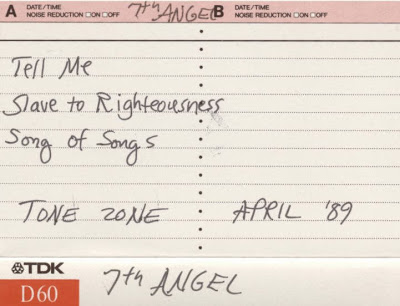 A DATE/TIME NOISE REDUCTION □ON □OFF 7th ANGEL B DATE/TIME NOISE REDUCTION □ON □OFF
Tell Me
Slave to Righteousness
Song of Songs
TONE ZONE APRIL '89
TDK
D60
7th ANGEL